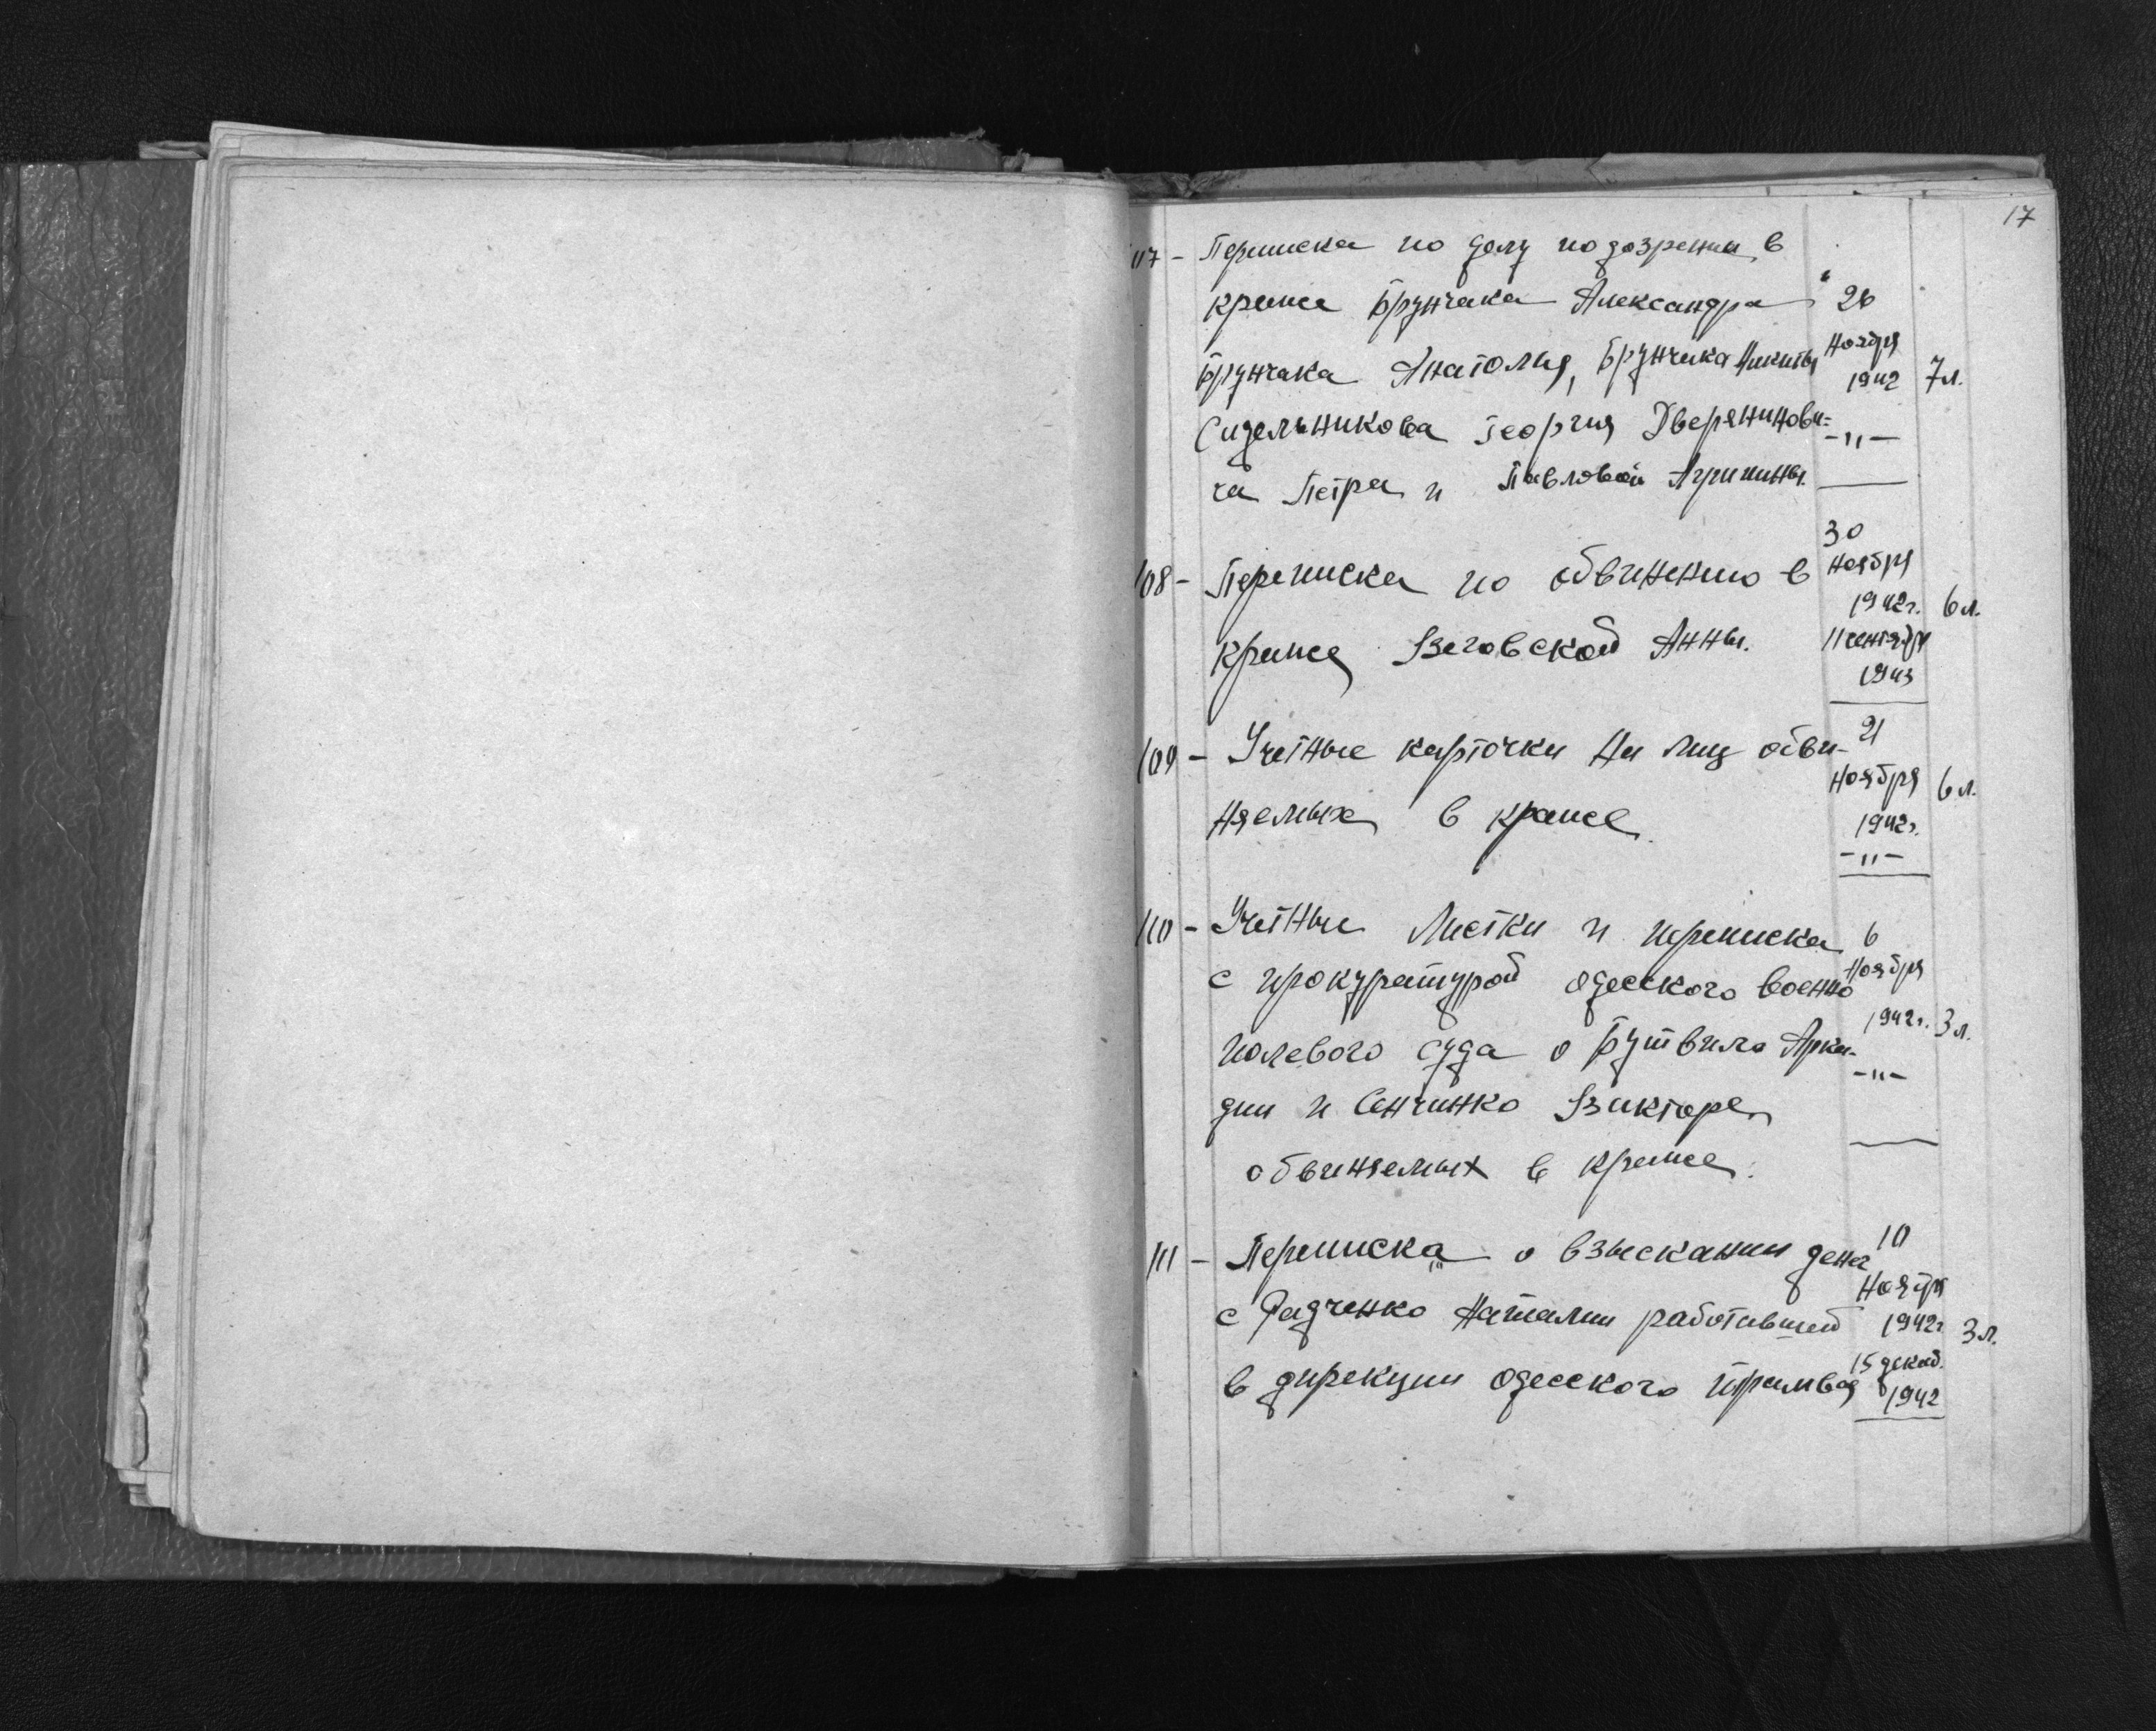 17
107 - Переписка по делу подозрении в
краже Брунчака Александра 26
Брунчака Анатолия, Брунчака Никиты Ноября 1942 7л.
Сидельникова Георгия Дверянинови- -"-
ча Петра и Павловой Агрипины.
30
108 - Переписка по обвинению в Ноября
1942г. 6л.
краже Вяговской Анны. 11 сентября
1943
109 - Учетные карточки на лиц обви- 21
няемых в краже. Ноября 6л.
1942г.
-"-
110 - Учетные Листки и переписка 6
с прокуратурой одесского военно Ноября
полевого суда о Бутвило Арка- 1942г. 3л.
дии и Сенчинко Викторе -"-
обвиняемых в краже.
111 - Переписка о взыскании денег 10
Ноября
с Радченко Наталии работавшей 1942г 3л.
в дирекции одесского трамвая 15 декаб.
1942